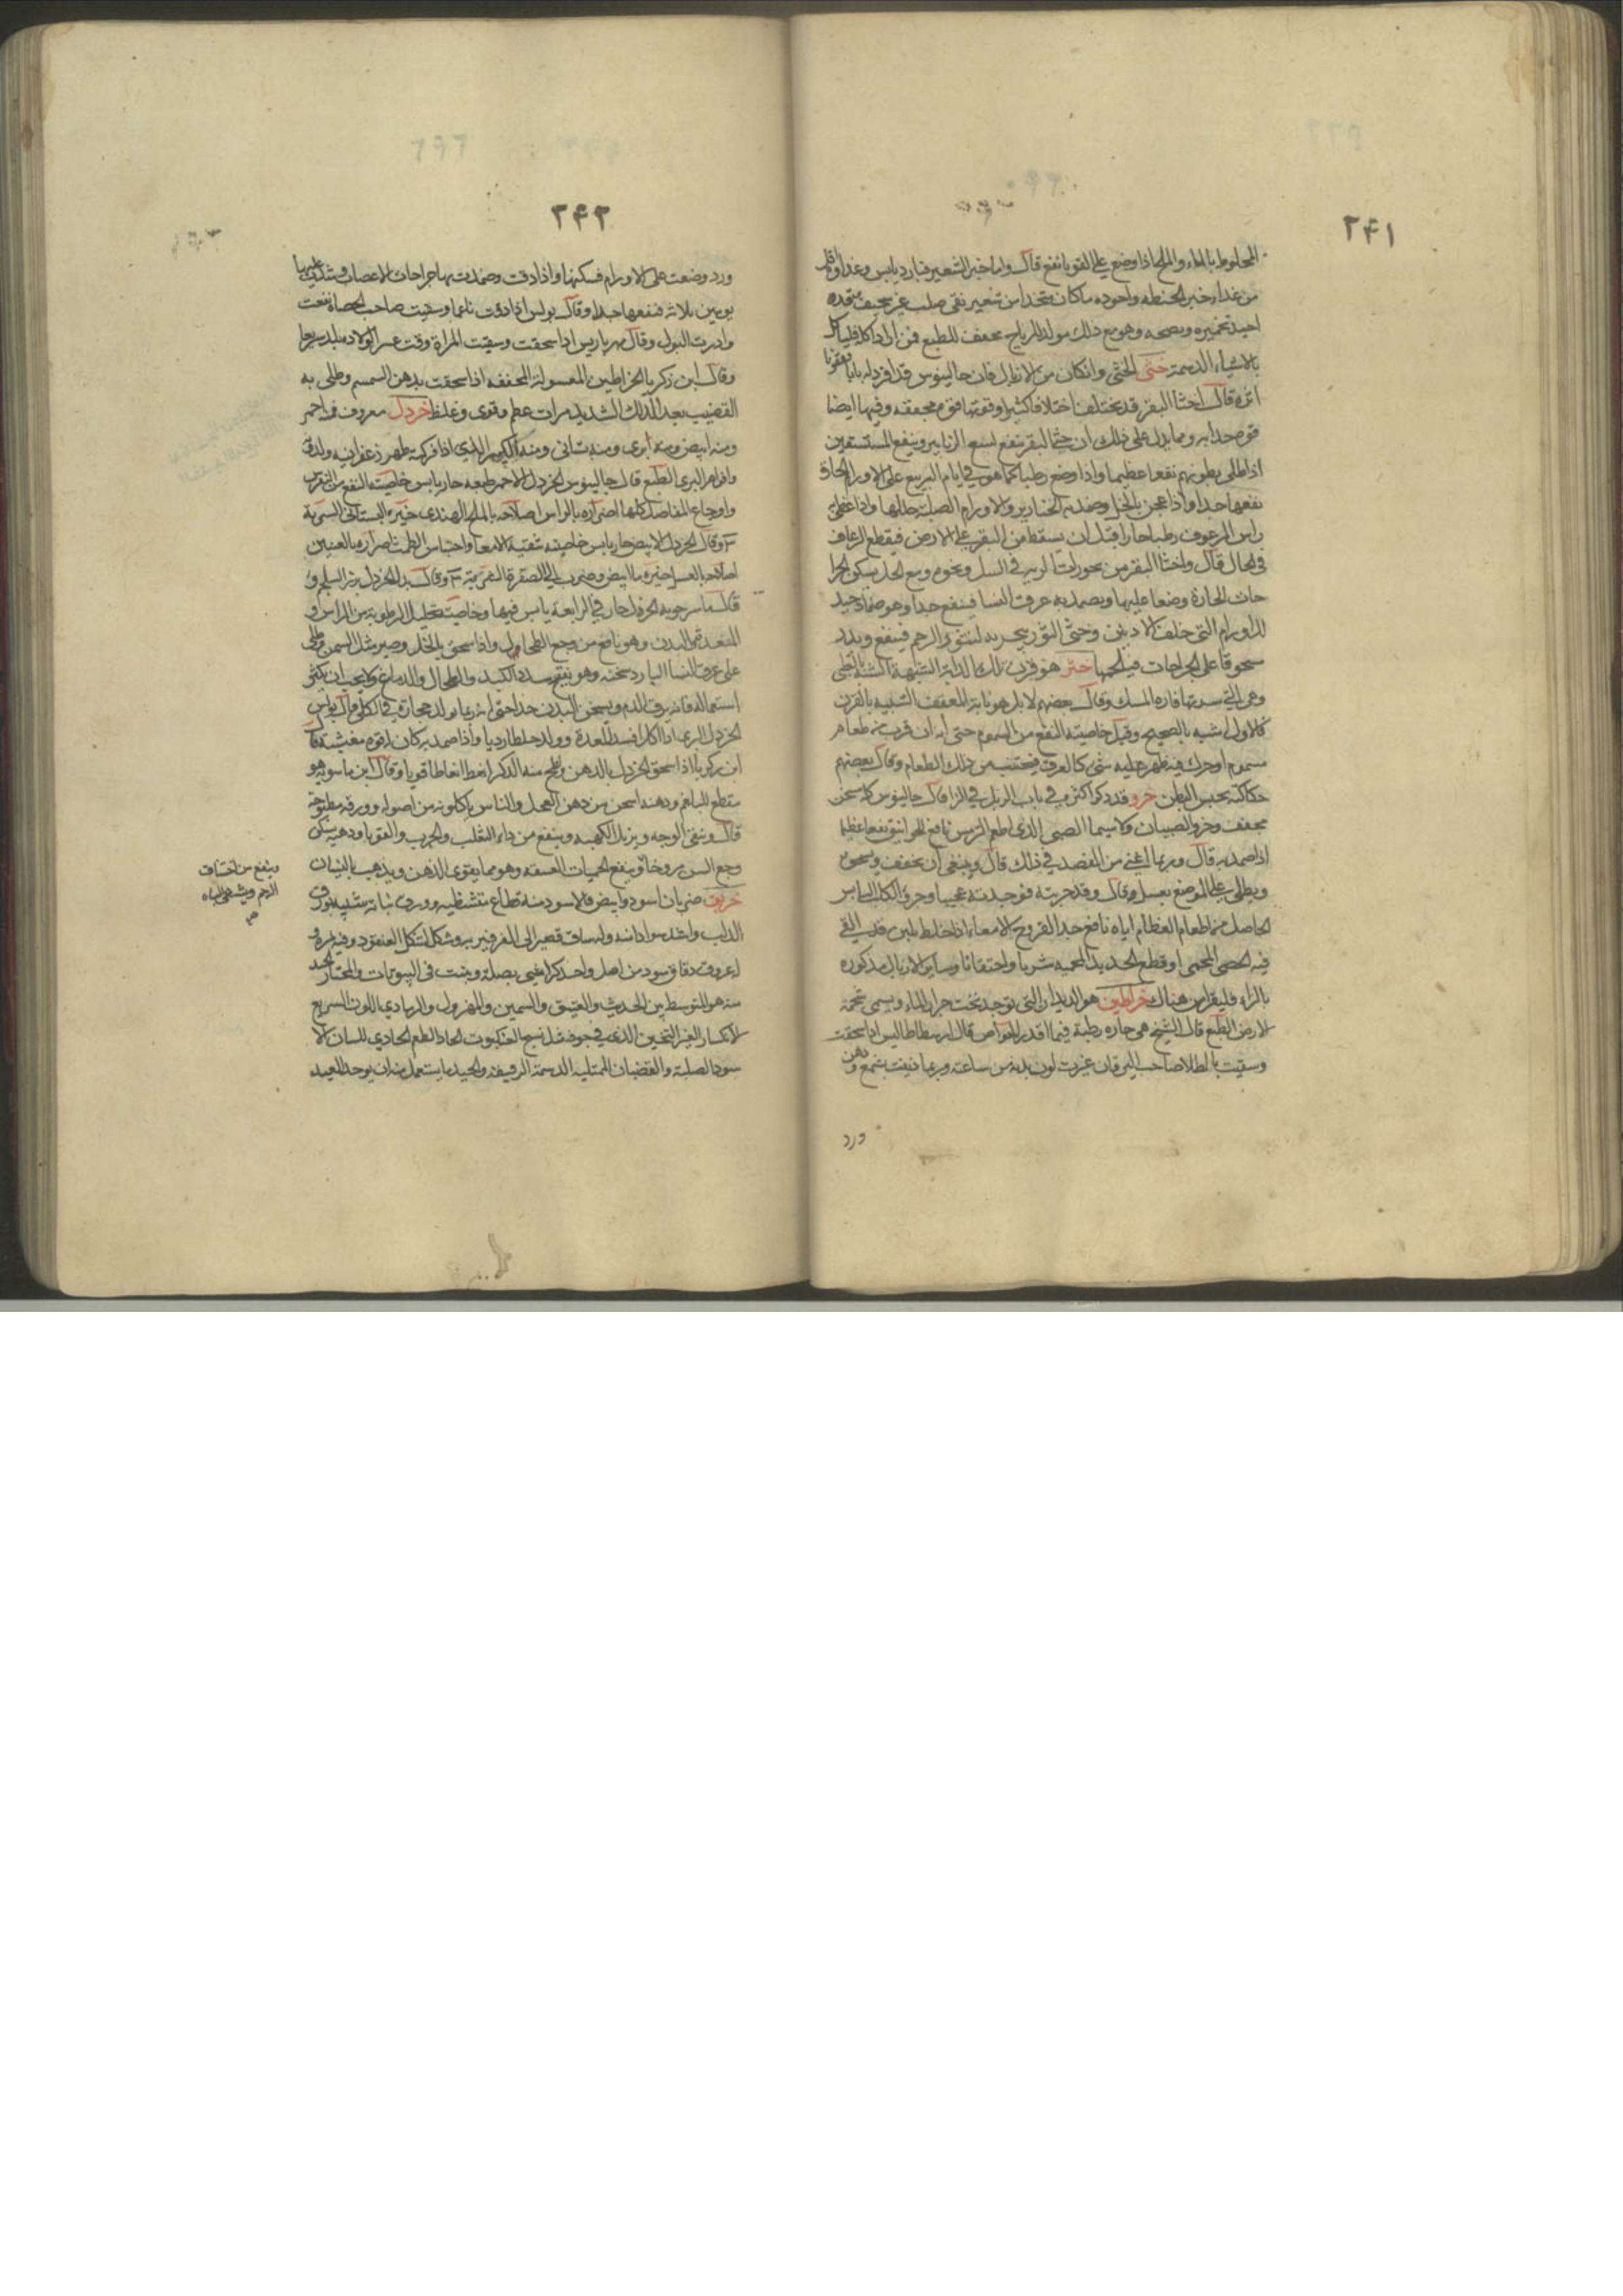 ٢٤١
المخلوط بالماء والملح اذا وضع على القوبا نفع قال واما خبز الشعير فبارد يابس وغذاوه اقل
من غذاء خبز الحنطه واجوده ماكان متخذا من شعير نقى صلب غير سخيف
اجيد تخميره ونضجه وهو مع ذلك مولد للرياح مجفف للطبع فمن اراد اكله فلياكل
بالاشياء الدسمة خثى الخثى وان كان من الازبال فان جالينوس قد افرد له بابا
قال اخثا البقر قد يختلف اختلافا كثيرا وقوتها قوة مجففه وفيها ايضا
قوة جذابه ومما يدل على ذلك ان خثى البقر ينفع لسع الزنابير وينفع المستسقين
اذا طلى بطونهم نفعا عظيما واذا وضع رطبا كما هو فى ايام الربيع على الاورام الحارة
نفعها جدا واذا عجن بالخل وضمد به الخنازير والاورام الصلبة حللها واذا
راس المرعوف رطبا حارا قبل ان يسقط من البقر على الارض فيقطع الرعاف
فى الحال قال واخثا البقر من بخورات الريه فى السل ونحوه ومع الخل يسكن الجرا
حات الحارة وضعا عليها ويضمد به عرق النسا فينفع جدا وهو ضماد جيد
للاورام التى خلف الاذنين وخثى الثور يبخر به لنتؤ الرحم فينفع ويذر
مسحوقا على الجراحات فيلحمها ختو هو قرن تلك الدابة الشبيهة
وهى التى سرتها فاره المسك وقال بعضهم لا بل هو نابه المعقف الشبيه بالقرن
كالاول اشبه بالصحيح وقيل خاصيته النفع من السموم حتى انه ان قرب من طعام
مسموم او حرك فيه ظهر عليه شى كالعرق فيجتنب من ذلك الطعام وقال بعضهم
حكاكته يحبس البطن خرو قد ذكر اكثره فى باب الزبل فى الزا قال جالينوس كله مسخن
مجفف وخرو الصبيان ولا سيما الصبى الذى اطعم الترمس نافع للخوانيق نفعا عظيما
اذا ضمد به قال وربما اغنى من الفصد فى ذلك قال وينبغى ان يجفف ويسحق
ويطلى به على الموضع بعسل وقال وقد جربته فوجدته عجيبا وخرو الكلب اليابس
الحاصل من اطعام العظام اياه نافع جدا لقروح الامعاء اذا خلط بلبن قد القى
فيه الحصى المحمى او قطع الحديد المحميه شربا واحتقانا وساير الازبال مذكوره
بالزاء فليقرا من هناك خراطين هو الديدان التى توجد تحت جرار الماء ويسمى شحمة
الارض الطبع قال الشيخ هى حاره رطبة فيما اقدر الخواص قال ارسطاطاليس اذا سحقت
وسقيت بالطلا صاحب اليرقان غيرت لون بدنه من ساعته وربما ذيفت بشمع ودهن
ورد
٢٤٢
ورد وضعت على الاورام فسكنها واذا دقت وضمدت بها جراحات الاعصاب وشدت عليها
يومين ثلاثه فنفعها جيدا وقال بولس اذا دقت ناعما وسقيت صاحب الحصاة نفعت
وادرت البول وقال مهراريس اذا سحقت وسقيت المراة وقت عسر الولاد تلد سريعا
وقال ابن زكريا الخراطين المغسولة المجففه اذا سحقت بدهن السمسم وطلى به
القضيب بعد الدلك الشديد مرات عظم وقوى وغلظ خردل معروف فمنه احمر
ومنه ابيض ومنه برى ومنه بستانى ومنه الكبير الذى اذا فركته ظهر زعفرانيه ولدن
وافواه البرى الطبع قال جالينوس الخردل الاحمر طبعه حار يابس خاصيته النفع من النقرس
واوجاع المفاصل كلها اضراره بالراس اصلاحه بالملح الهندى خيره البستانى الشربة
وقال الخردل الابيض حار يابس خاصيته تنقية الامعا واحتباس الطمث اضراره بالعينين
اصلاحه بالعسل خيره ما ابيض وضرب الى الصفرة الشربة وقال بدل الخردل بزر السلجم و
قال ماسرجويه الخردل حار فى الرابعة يابس فيها وخاصيته تحليل الرطوبة من الراس و
المعدة ثم البدن وهو نافع من وجع الطحال واذا سحق بالخل وصير مثل السمن وطلى
على عرق النسا البارد سخنه وهو يفتح سدد الكبد والطحال والدماغ ولا يجب ان يكثر
استعماله فانه يرق الدم ويسخن البدن جدا حتى انه ربما يولد حجارة فى الكلى قال بولس
الخردل البرى اذا اكل افسد المعدة وولد خلطا رديا واذا ضمد به كان له قوه مغشية قال
ابن زكريا اذا سحق الخردل بالدهن ولطخ منه الذكر انعظ انعاظا قويا وقال ابن ماسويه هو
مقطع للبلغم ودهنه اسخن من دهن الفجل والناس ياكلونه من اصوله وورقه مطبوخة
قال وينقى الوجه ويزيل الكهبه وينفع من داء الثعلب والجرب والقوبا ودهنه يسكن
وجع السن مروخا وينفع الحميات العتيقه وهو مما يقوى الذهن ويذهب بالنسيان
خربق ضربان اسود وابيض فالاسود منه قطاع متشظيه وورق نباته شبيه بورق
الدلب واشد سوادا منه وله ساق قصير الى الفرفير بروشكل كشكل العنقود وفيه ثمره
له عروق دقاق سود من اصل واحد كراسى بصلة وينبت فى البيوتات والمختار الجيد
منه هو المتوسط بين الحديث والعتيق والسمين والمهزول والرمادى اللون السريع
الانكسار الغير الثخين الذى فى جوفه مثل نسج العنكبوت الحاد الطعم الحاذى اللسان لا
سود الصلبة والقضبان الممتليه الدسمة الرقيقه والجيد ما يستعمل منه ان يوخذ العيد
وينفع من اختناق
الرحم ويشهى الباه
صح